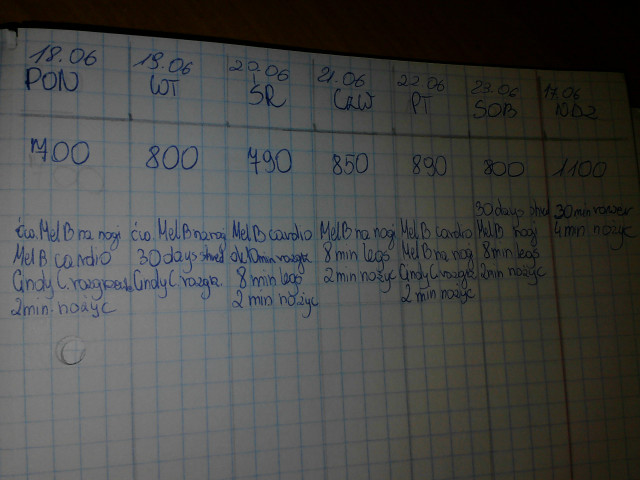 18.06
PON
700
ćw. Mel B na nogi
Mel B cardio
Cindy C. rozgrzewka
2 min. nożyc
19.06
WT
800
ćw. Mel B na nogi
30 days shred
Cindy C. rozgrz.
20.06
ŚR
790
Mel B cardio
10 min rozgrz.
8 min legs
2 min nożyc
21.06
CZW
850
Mel B na nogi
8 min legs
2 min nożyc
22.06
PT
890
Mel B cardio
Mel B na nogi
Cindy C. rozgrz.
2 min nożyc
23.06
SOB
800
30 days shred
Mel B nogi
8 min legs
2 min nożyc
17.06
NDZ
1100
30 min rower
4 min. nożyc